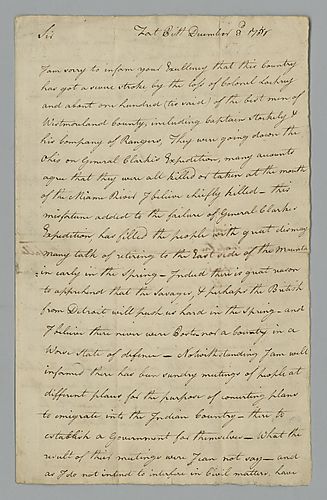 Sir Fort Pitt December 3d 1781
I am sorry to inform your Excellency that this Country
has got a severe stroke by the loss of Colonel Lochry
and about one hundred (tis said) of the best men of
Westmorland County, including Captain Stokely &
his Company of Rangers, They were going down the
Ohio on General Clarke's Expedition, many accounts
agree that they were all killed or taken at the mouth
of the Miame River I believe chiefly killed – this
misfortune added to the failure of General Clarke's
Expedition, has filled the people with great dismay
many talk of retiring to the East side of the Mountain
in early in the Spring – Indeed there is great reason
to apprehend that the Savages, & perhaps the British
from Detroit will push us hard in the Spring – and
I believe there never were Posts, nor a Country in a
Worse State of defence – Notwithstanding I am well
informed there has been sundry meetings of people at
different places for the purpose of concerting plans
to emigrate into the Indian Country – there to
establish a Government for themselves – What the
result of their meetings were I can not say – and
as I do not intend to interfere in Civil matters, have